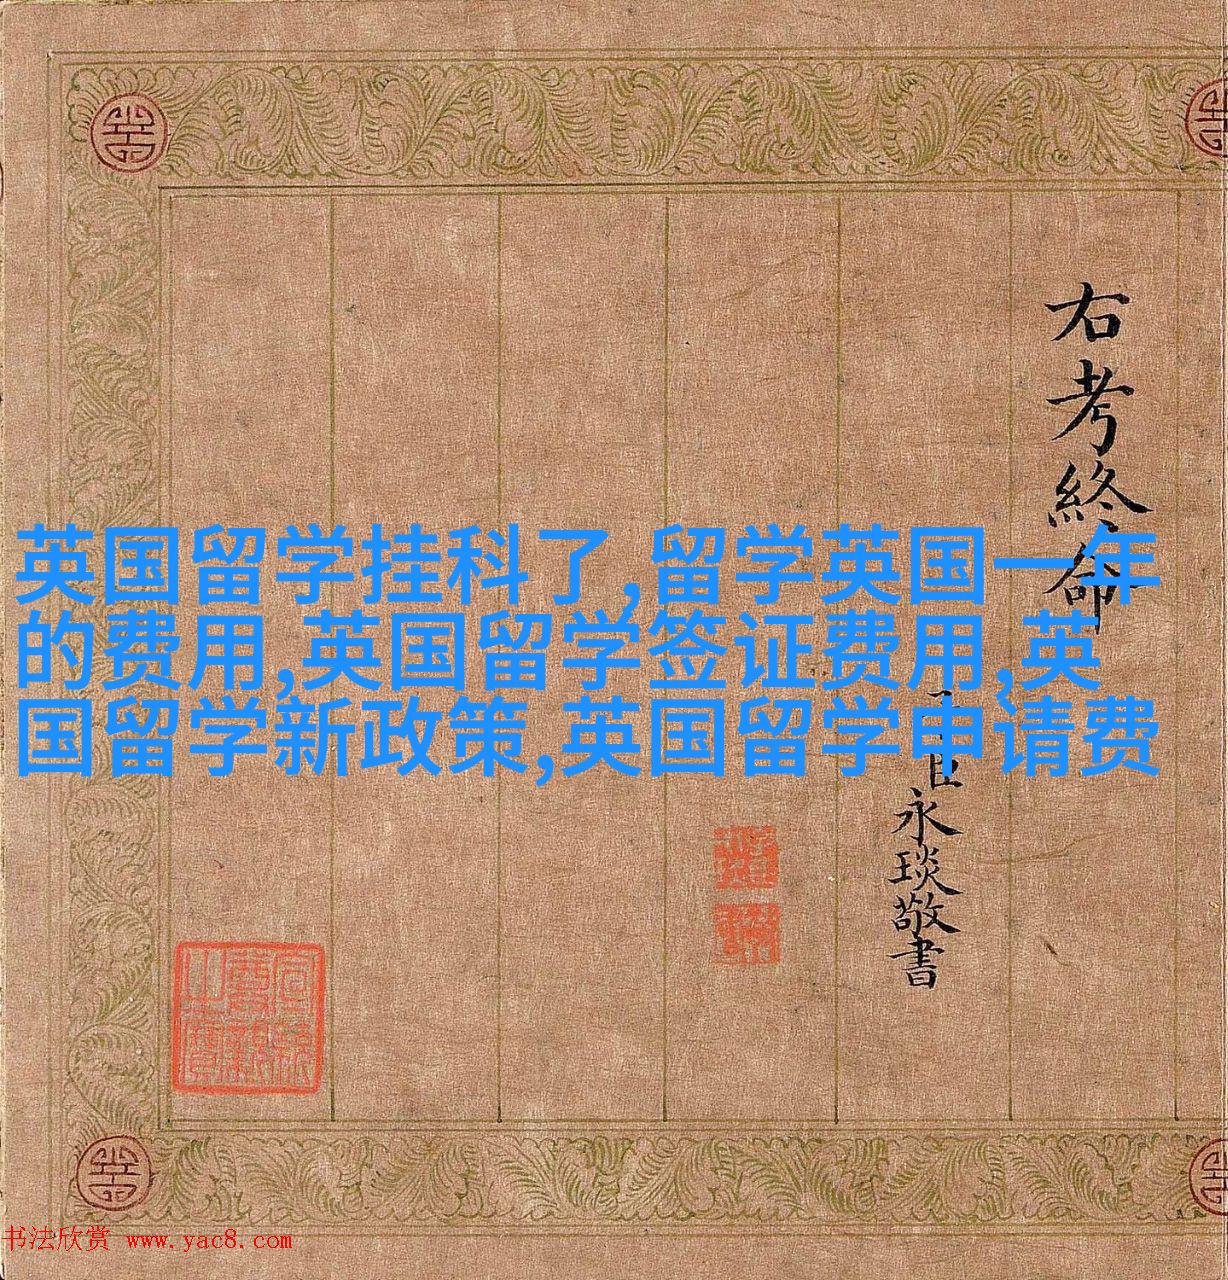 右考終命
臣永琰敬書
英国留学挂科了,留学英国一年
的费用,英国留学签证费用,英
国留学新政策,英国留学申请费
书法欣赏 www.yac8.com